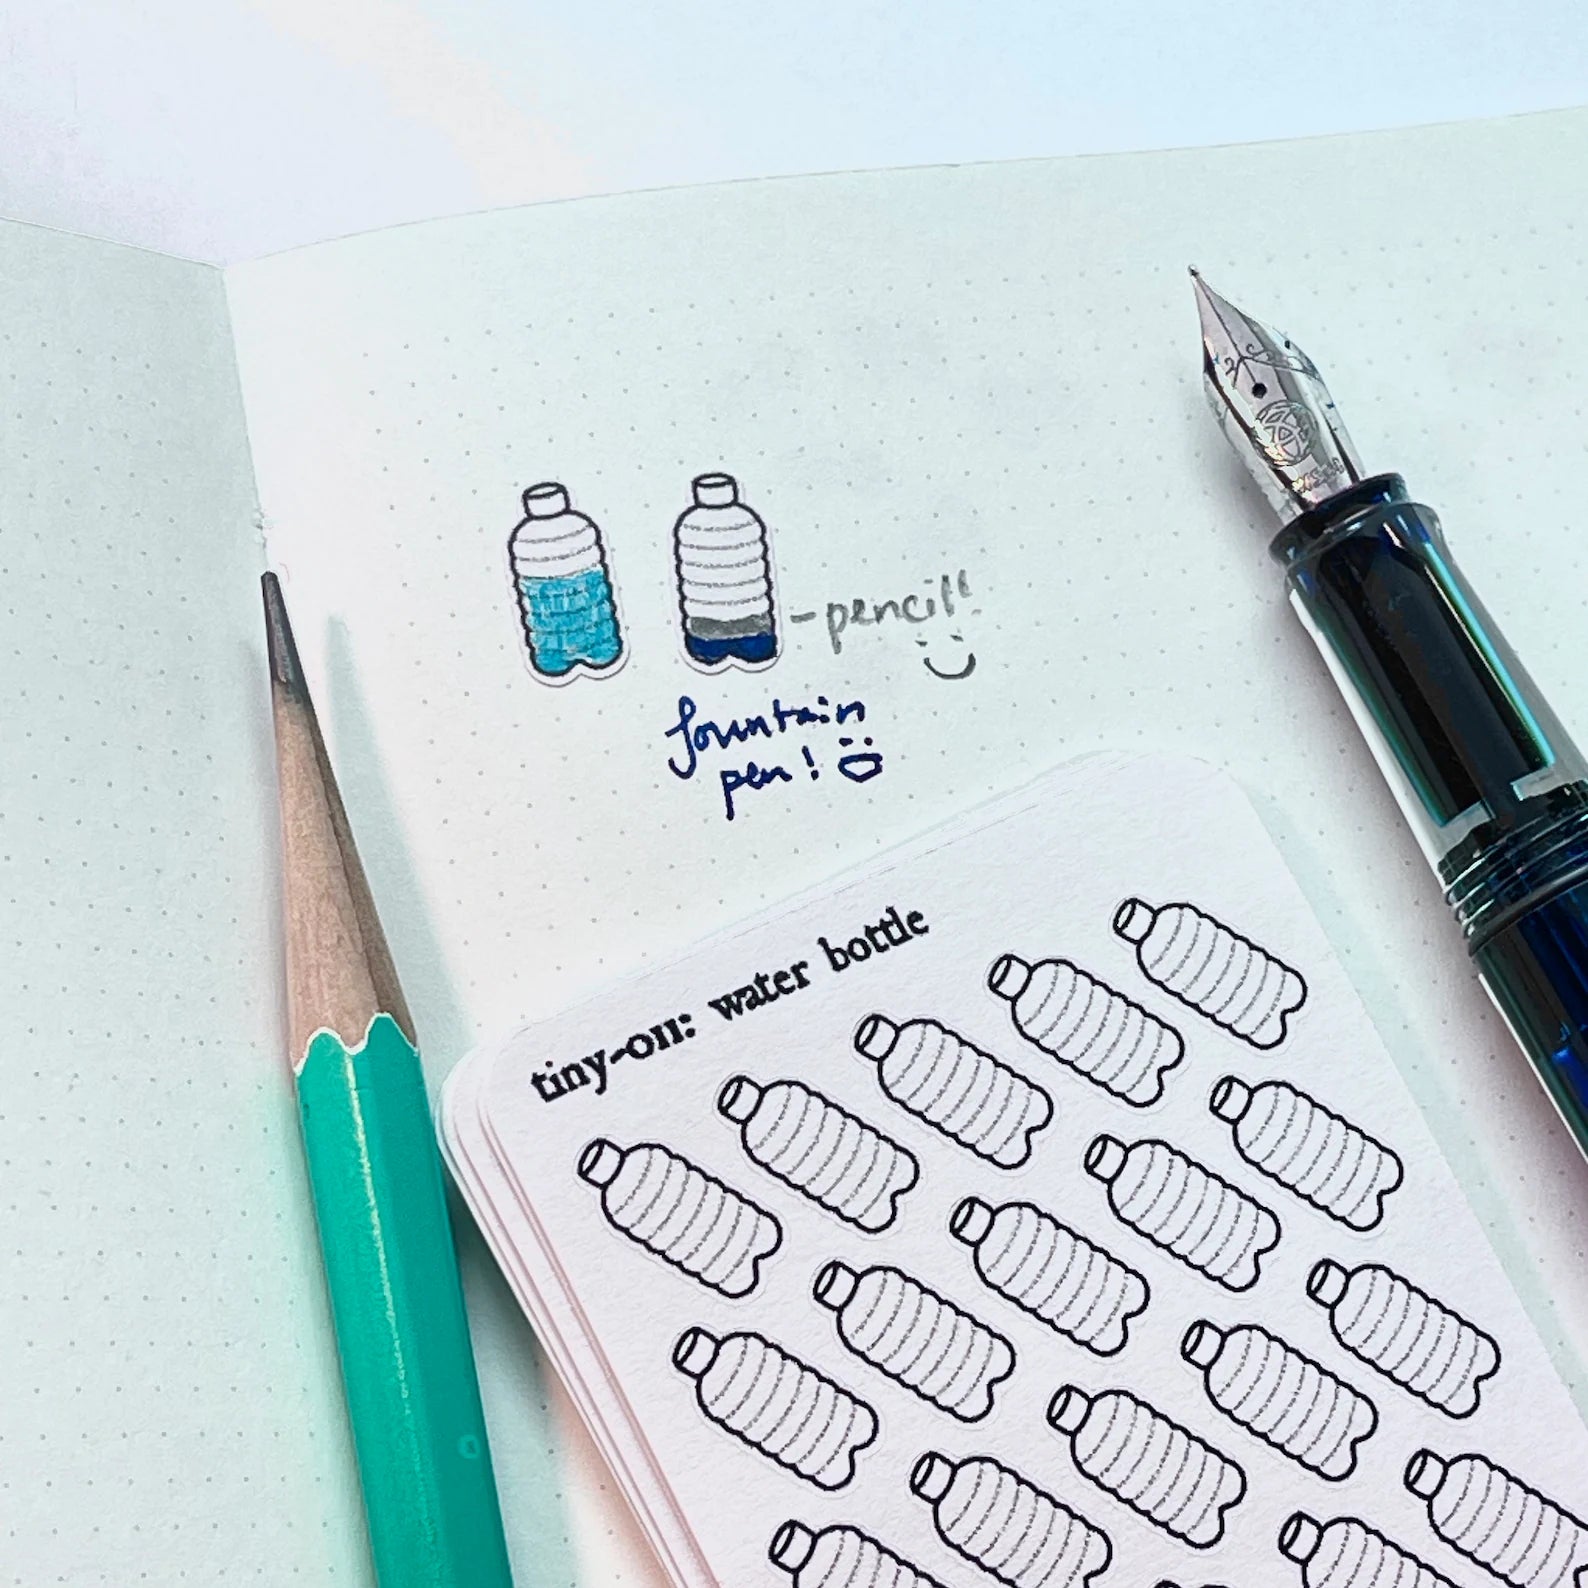 -pencil!!
fountain
pen!
tiny-011: water bottle